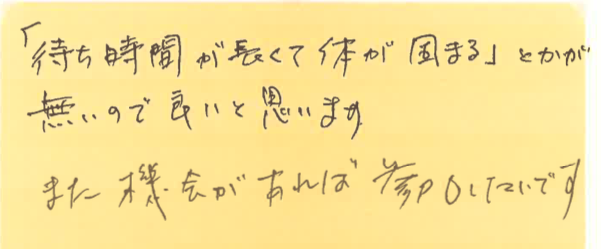 「待ち時間が長くて体が固まる」とかが
無いので良いと思います
また機会があれば参加したいです